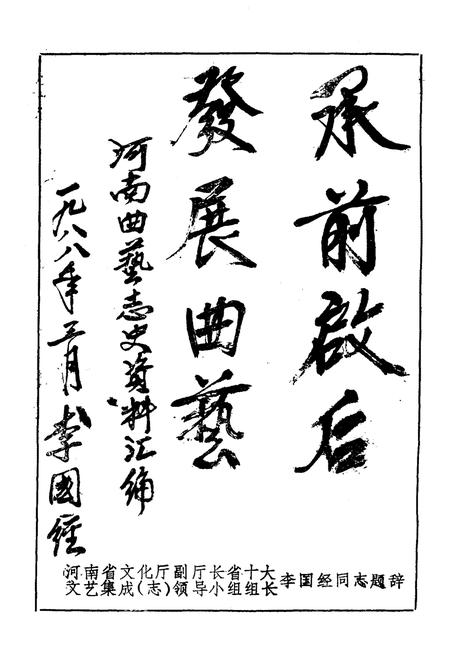 承前啟后
發展曲藝
河南曲藝志史資料汇编
一九八八年三月李國經
河南省文化厅副厅长省十大
文艺集成(志)领导小组组长
李国经同志题辞